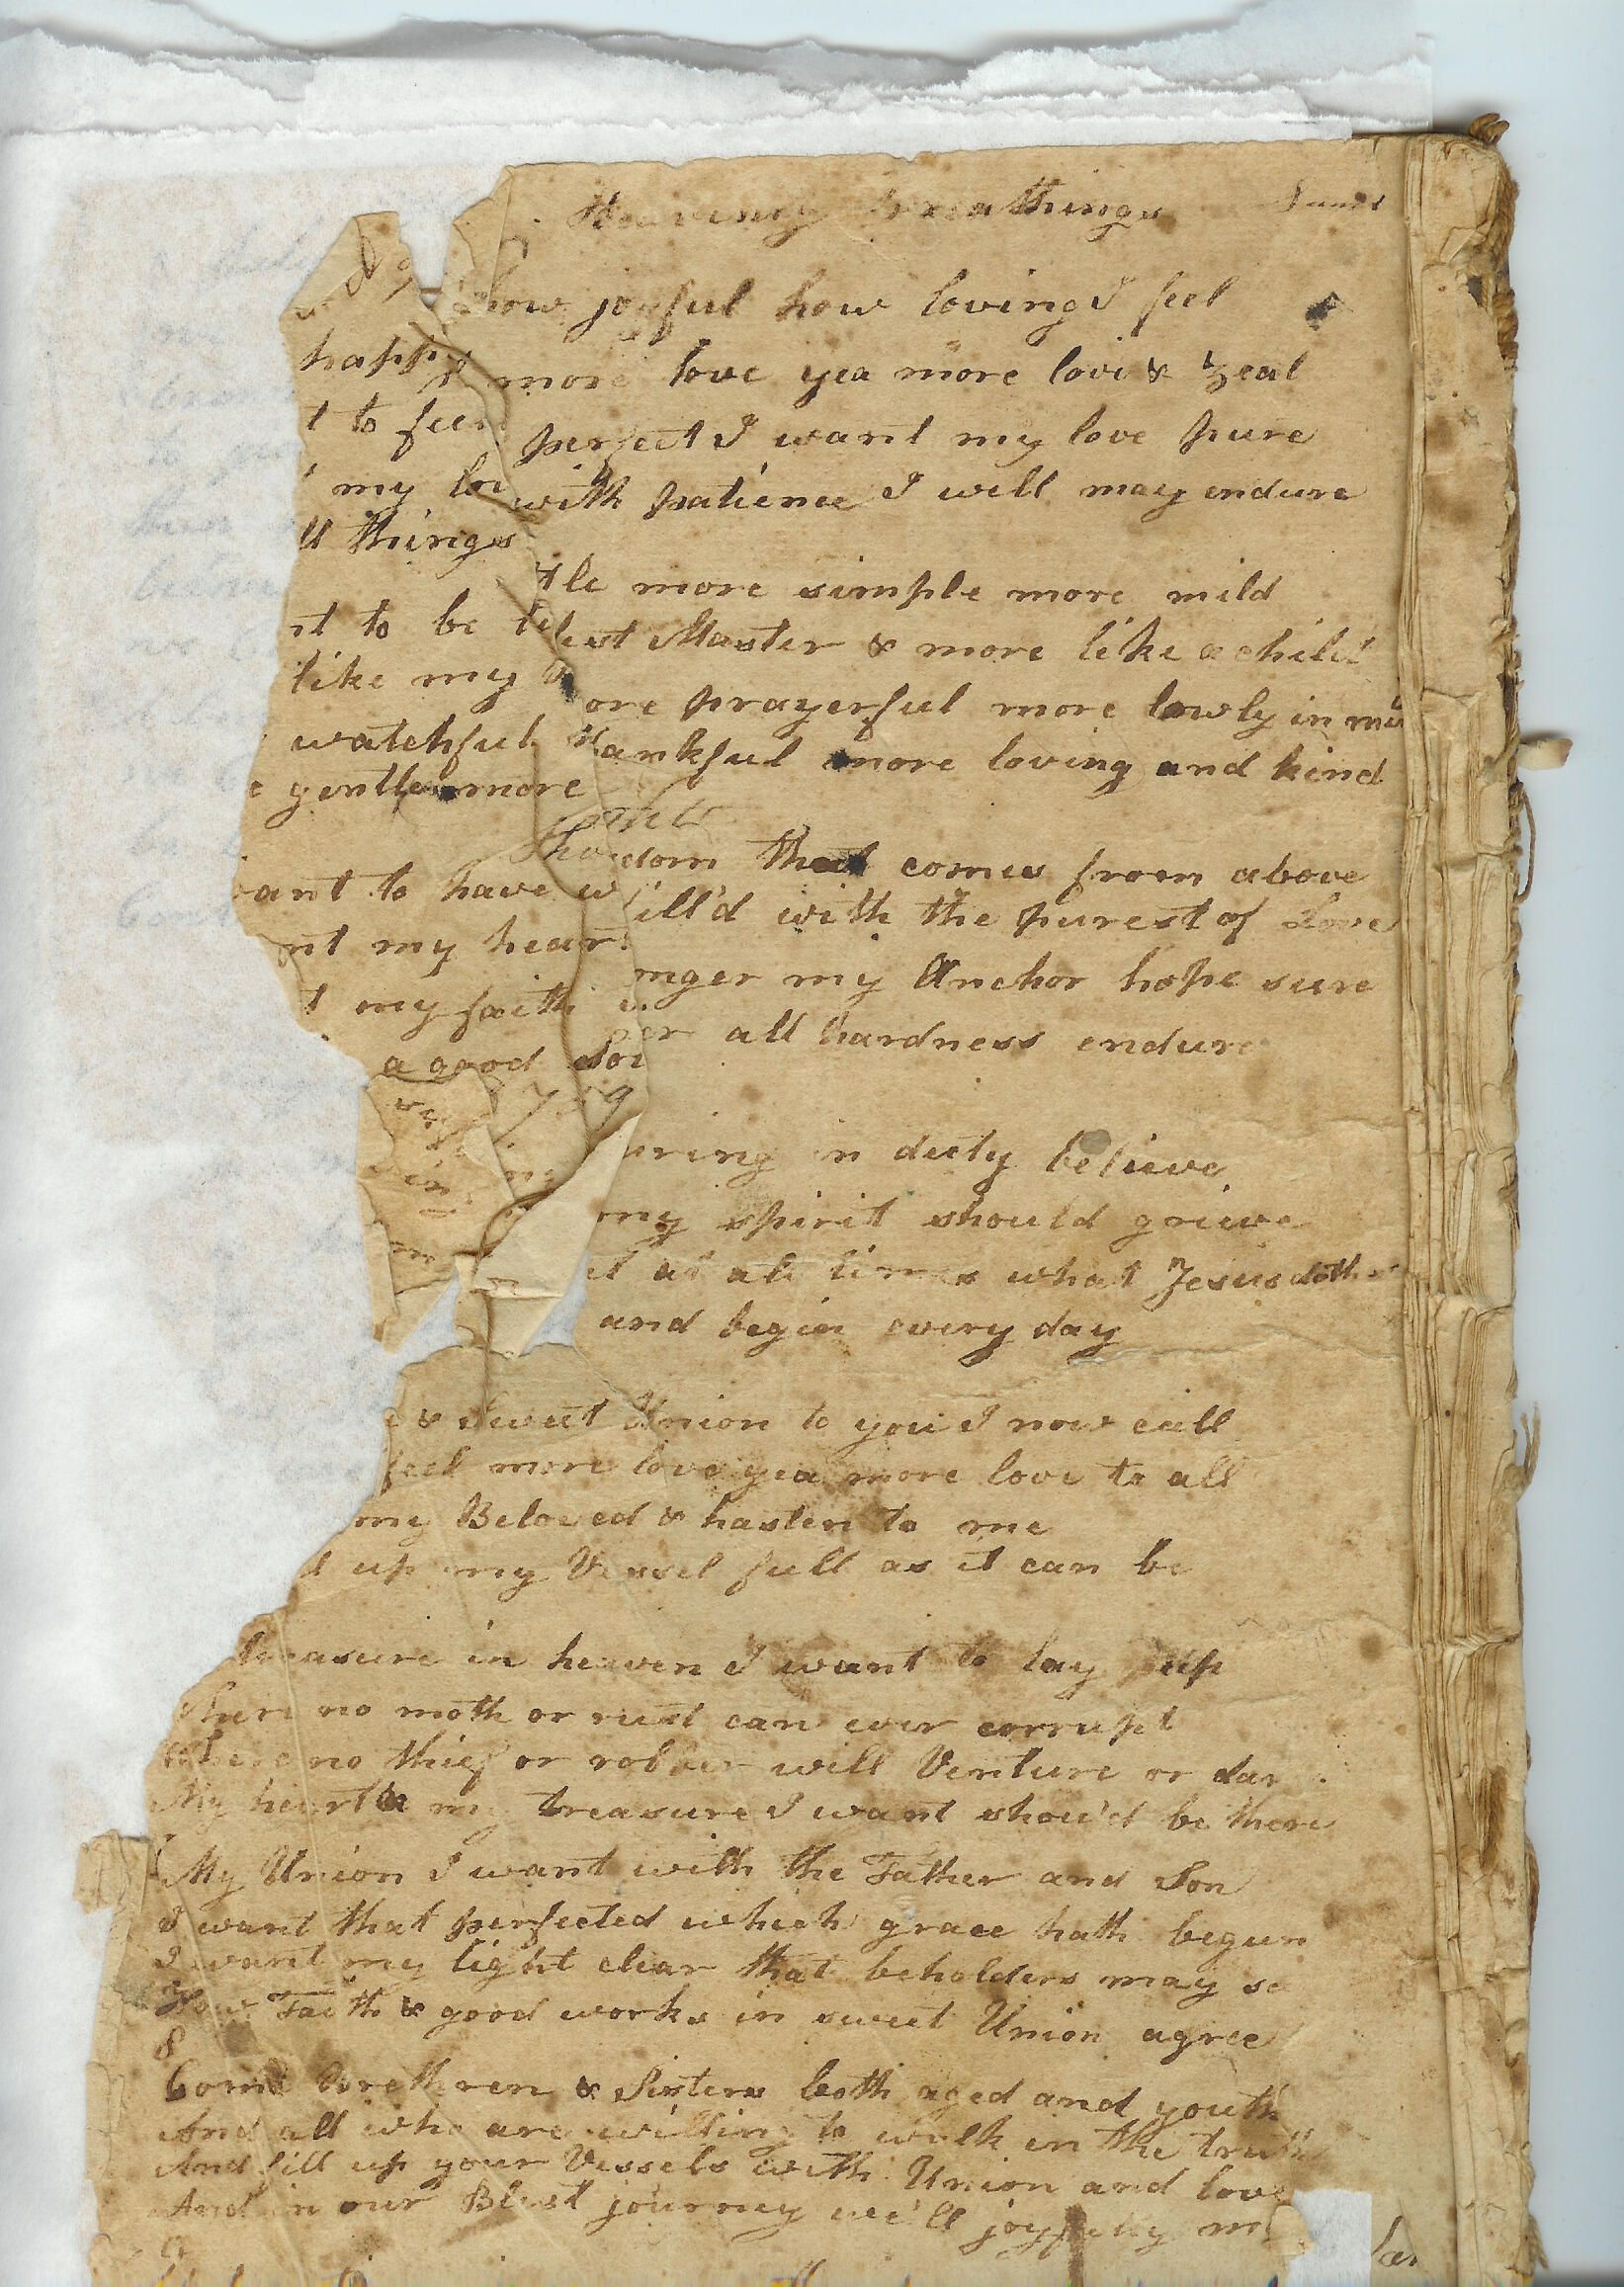 Heavenly Breathings
happy how joyful how loving I feel
t to feel more love yea more love & zeal
my lov perfect I want my love pure
ll things with patience I well may endure
nt to be tle more simple more mild
like my lest Master & more like a child
watchful ore prayerful more lowly in min
gentle more thankful more loving and kind
ant to have w dom that comes from above
nt my heart ill'd with the purest of Love
t my faith nger my Anchor hope sure
a good Sol er all hardness endure
uring in duty believe
my spirit should grieve
at all times what Jesus doth
and begin every day
& Sweet Union to you I now call
feel more love yea more love to all
my Beloved & hasten to me
up my Vessel full as it can be
treasure in heaven I want to lay up
Where no moth or rust can ever corrupt
Where no thief or robber will Venture or dar
My heart & my treasure I want shou'd be there
My Union I want with the Father and Son
I want that perfected which grace hath begun
I want my light clear that beholders may se
How Faith & good works in sweet Union agree
8
Come Brethren & Sisters both aged and youth
And all who are willing to walk in the truth
And fill up your Vessels with Union and love
And in our Blest journey we'll joyfully m